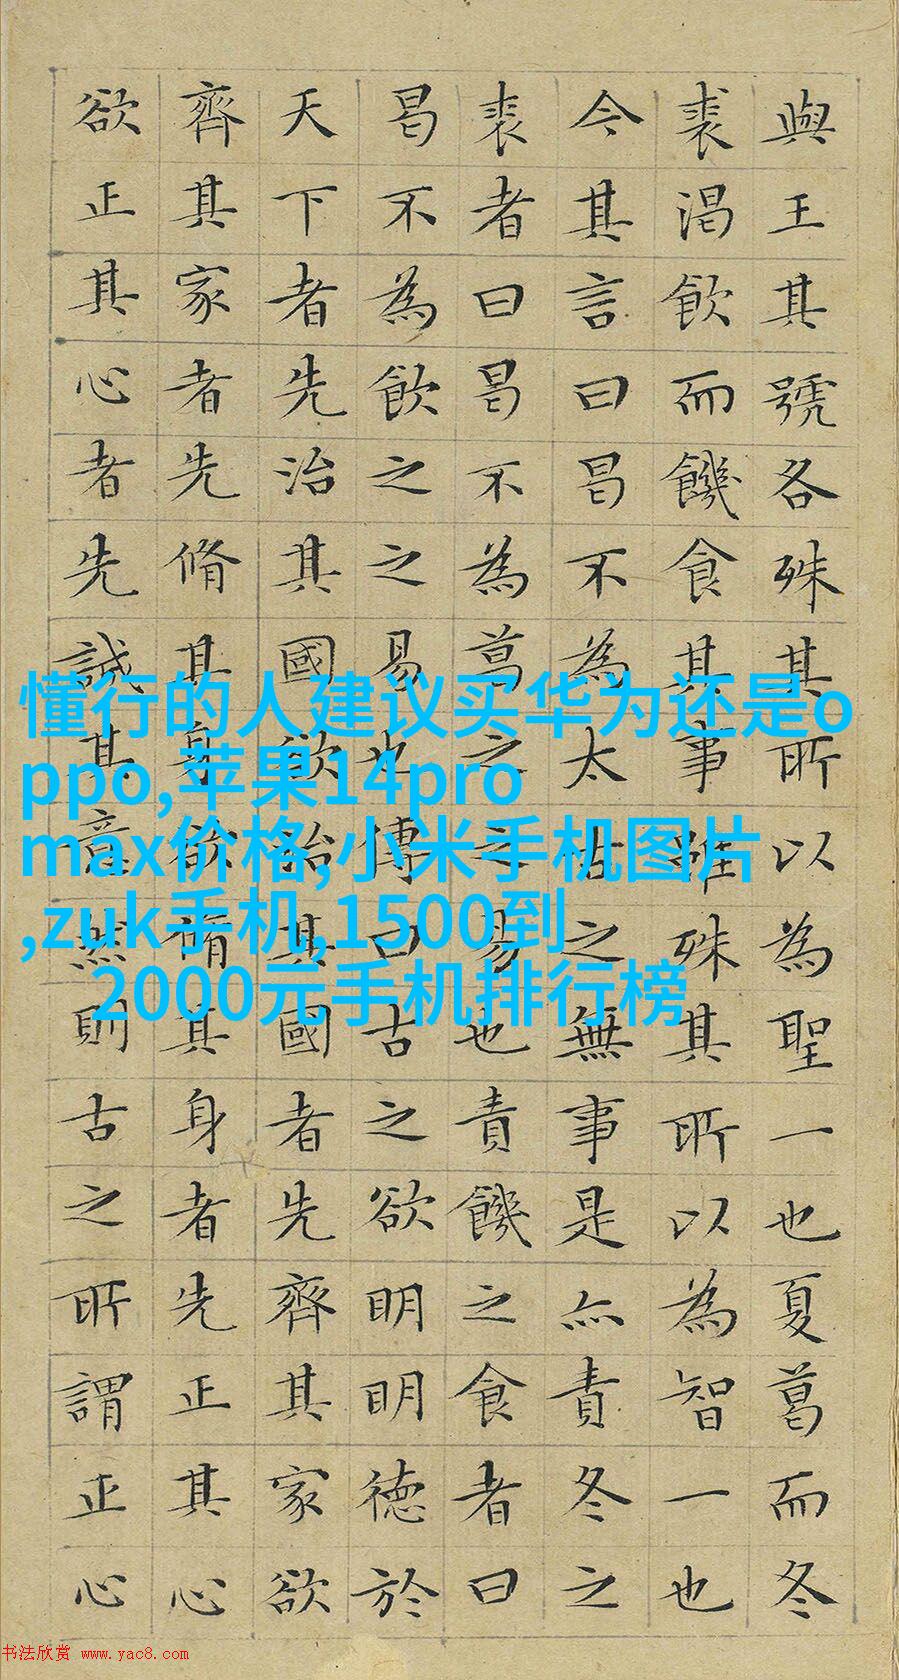 與王其號各殊其所以為聖一也夏葛而冬
裘渴飲而饑食其事雖殊其所以為智一也
今其言曰曷不為太古之無事是亦責冬之
裘者曰曷不為葛之之易也責饑之食者曰
曷不為飲之之易也傳曰古之欲明明德於
天下者先治其國欲治其國者先齊其家欲
齊其家者先脩其身欲脩其身者先正其心
欲正其心者先誠其意然則古之所謂正心
懂行的人建议买华为还是o
ppo,苹果14pro
max价格,小米手机图片
,zuk手机,1500到
2000元手机排行榜
书法欣赏 www.yac8.com